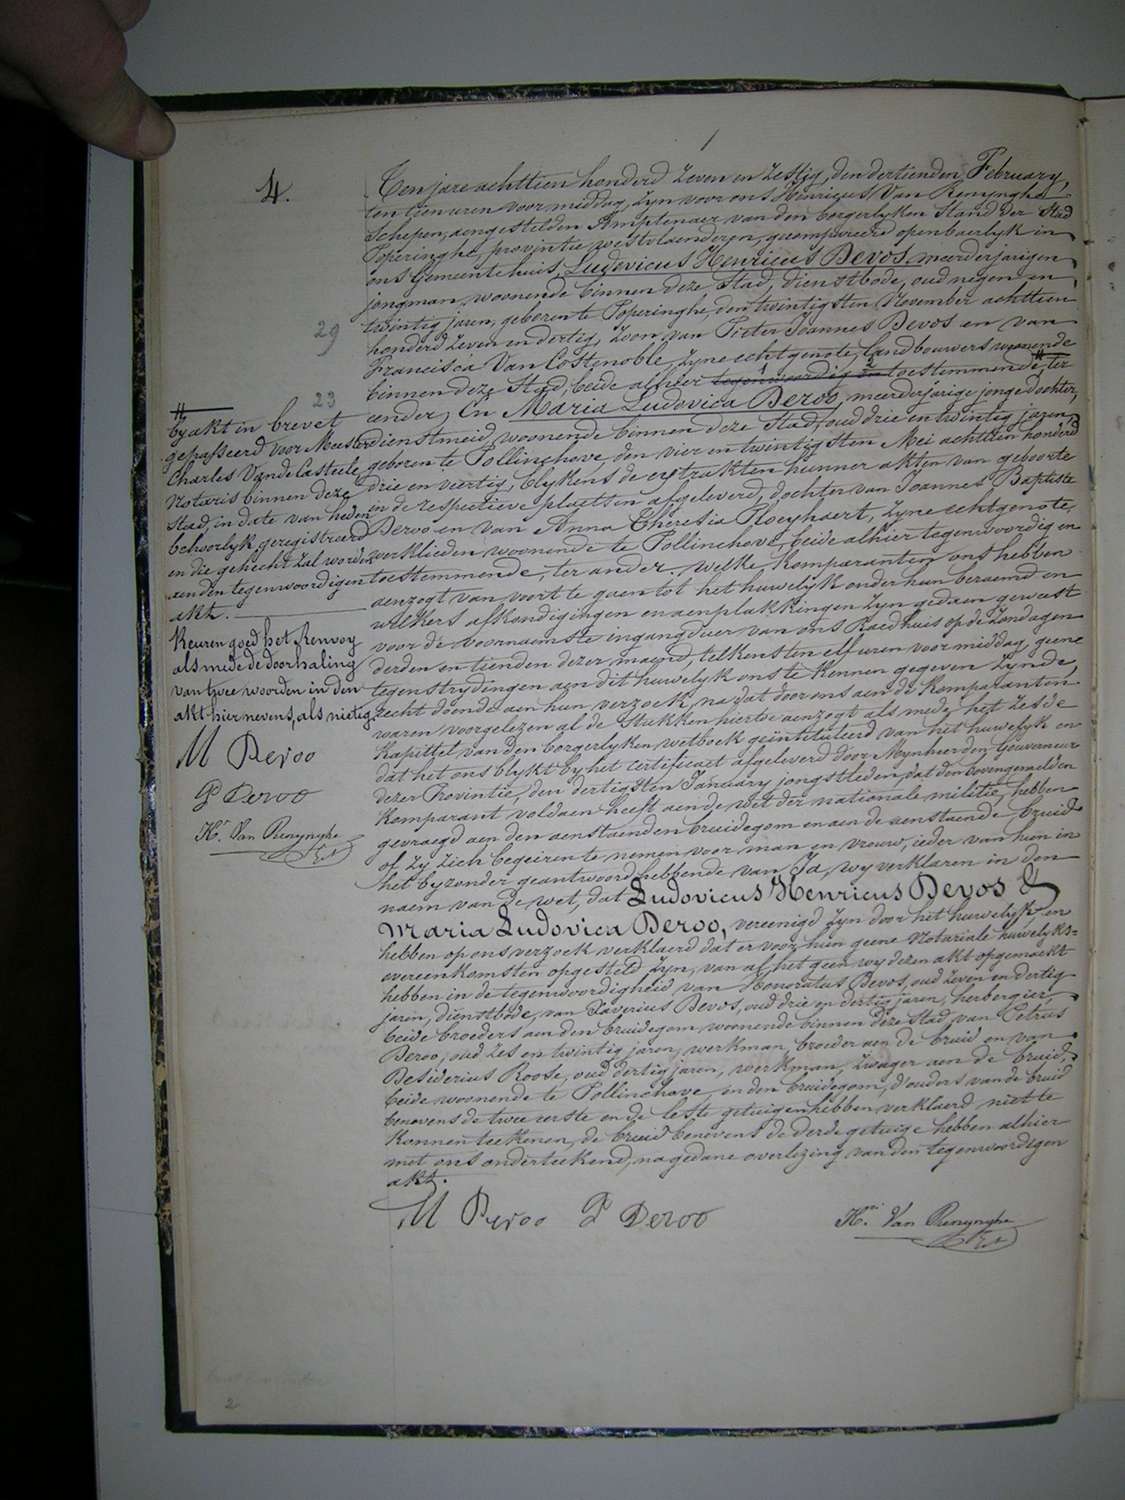 1
4.
Ten jare achttien honderd zeven en zestig, den dertienden February,
ten tien uren voormiddag, zyn voor ons Henricus Van Renynghe
Schepen, aengestelden Amptenaer van den borgerlyken Stand der Stad
Poperinghe, provintie westvlaenderen, gecompareerd openbaerlyk in
ons Gemeentehuis, Ludovicus Henricus Devos, meerderjarigen
jongman, woonende binnen deze Stad, dienstbode, oud negen en
twintig jaren, geboren te Poperinghe, den twintigsten November achttien
29
honderd zeven en dertig, zoon van Pieter Joannes Devos en van
Francisca Van Costenoble, zyne echtgenote, landbouwers woonende
binnen deze Stad, beide alhier tegenwoordig en toestemmende, ter
23
eender, En Maria Ludovica Deroo, meerderjarige jongedochter,
dienstmeid, woonende binnen deze Stad, oud drie en twintig jaren,
geboren te Pollinchove, den vier en twintigsten Mei achttien honderd
drie en veertig, blykens de extrakten hunner akten van geboorte
in de respectieve plaetsen afgeleverd, dochter van Joannes Baptiste
Deroo en van Anna Theresia Ploeyhaert, zyne echtgenote,
werklieden woonende te Pollinchove, beide alhier tegenwoordig en
toestemmende, ter ander, welke komparanten ons hebben
aenzogt van voort te gaen tot het huwelyk onder hun beraemd en
welkers afkondigingen en aenplakkingen zyn gedaen geweest
voor de voornaemste ingangdeur van ons Raedhuis op de zondagen
derden en tienden dezer maend, telkensten elf uren voormiddag, geene
tegenstrydingen aen dit huwelyk ons te kennen gegeven zynde,
recht doende aen hun verzoek, na dat door ons aen de komparanten
waren voorgelezen al de stukken hiertoe aenzogt als mede het zesde
kapittel van den borgerlyken wetboek geïntituleerd van het huwelyk en
dat het ons blykt by het certificaet afgeleverd door Mynheer den Gouverneur
dezer Provintie, den dertigsten January jongstleden, dat den bovengemelden
komparant voldaen heeft aen de wet der nationale militie, hebben
gevraegd aen den aenstaenden bruidegom en aen de aenstaende bruid
of zy zich begeiren te nemen voor man en vrouw, ieder van hun in
het byzonder geantwoord hebbende van Ja, wy verklaren in den
naem van de wet, dat Ludovicus Henricus Devos &
Maria Ludovica Deroo, vereenigd zyn door het huwelyk, en
hebben op ons verzoek verklaerd dat er voor hun geene Notariale huwelyks-
overeenkomsten opgesteld zyn, van al het geen wy dezen akt opgemaekt
hebben in de tegenwoordigheid van Honoratus Devos, oud zeven en dertig
jaren, dienstbode, van Xaverius Devos, oud drie en dertig jaren, herbergier,
beide broeders aen den bruidegom, woonende binnen deze stad, van Petrus
Deroo, oud zes en twintig jaren, werkman, broeder aen de bruid en van
Desiderius Roose, oud dertig jaren, werkman, zwager aen de bruid,
beide woonende te Pollinchove, en den bruidegom, d'ouders van de bruid
benevens de twee eerste en de leste getuigen hebben verklaerd niet te
konnen teekenen, de bruid benevens de derde getuige hebben alhier
met ons onderteekend, na gedane overlezing van den tegenwoordigen
akt.
M Deroo P Deroo Hri Van Renynghe
by akt in brevet
gepasseerd voor Meester
Charles Vande Casteele
Notaris binnen deze
Stad, in date van heden
behoorlyk geregistreerd
en die gehecht zal worden
aen den tegenwoordigen
akt.
Keuren goed het Renvoy
als mede de doorhaling
van twee woorden in den
akt hier nevens, als nietig
M Deroo
P Deroo
Hri Van Renynghe
2